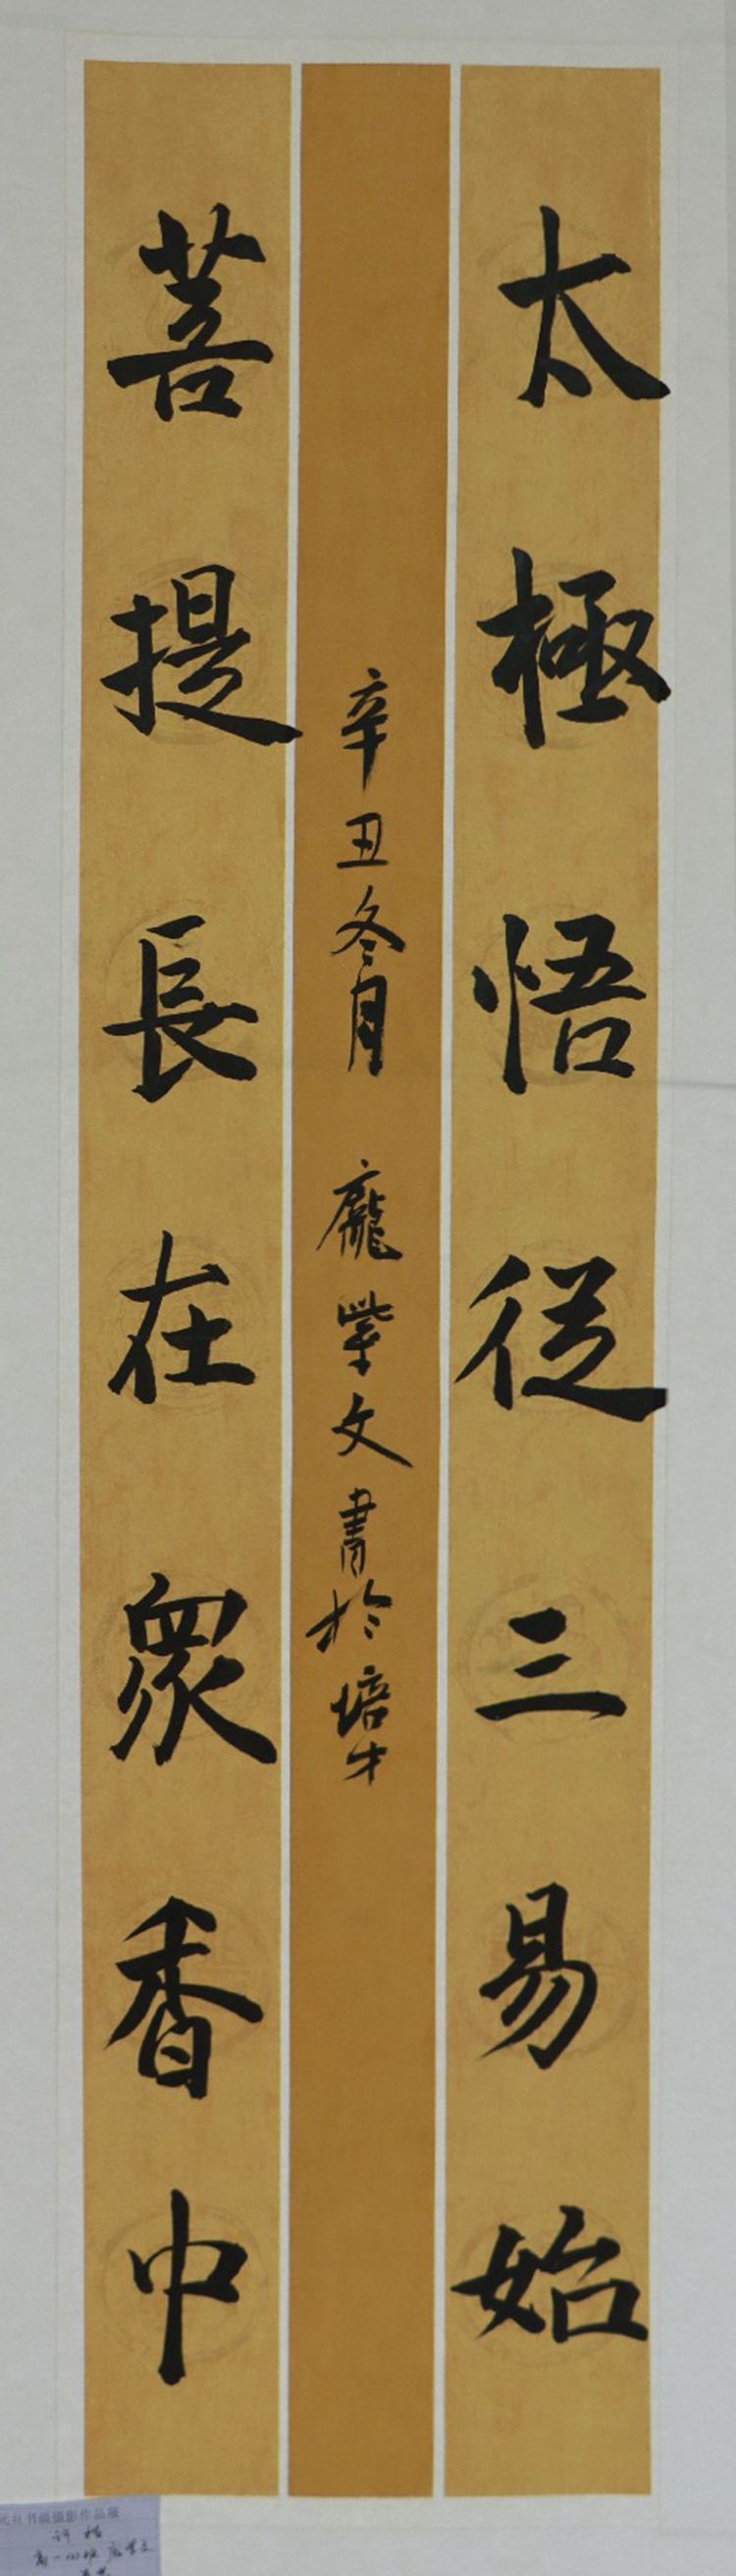 太極悟從三易始
菩提長在眾香中
辛丑冬月 龐紫文書於培才
元旦书画摄影作品展